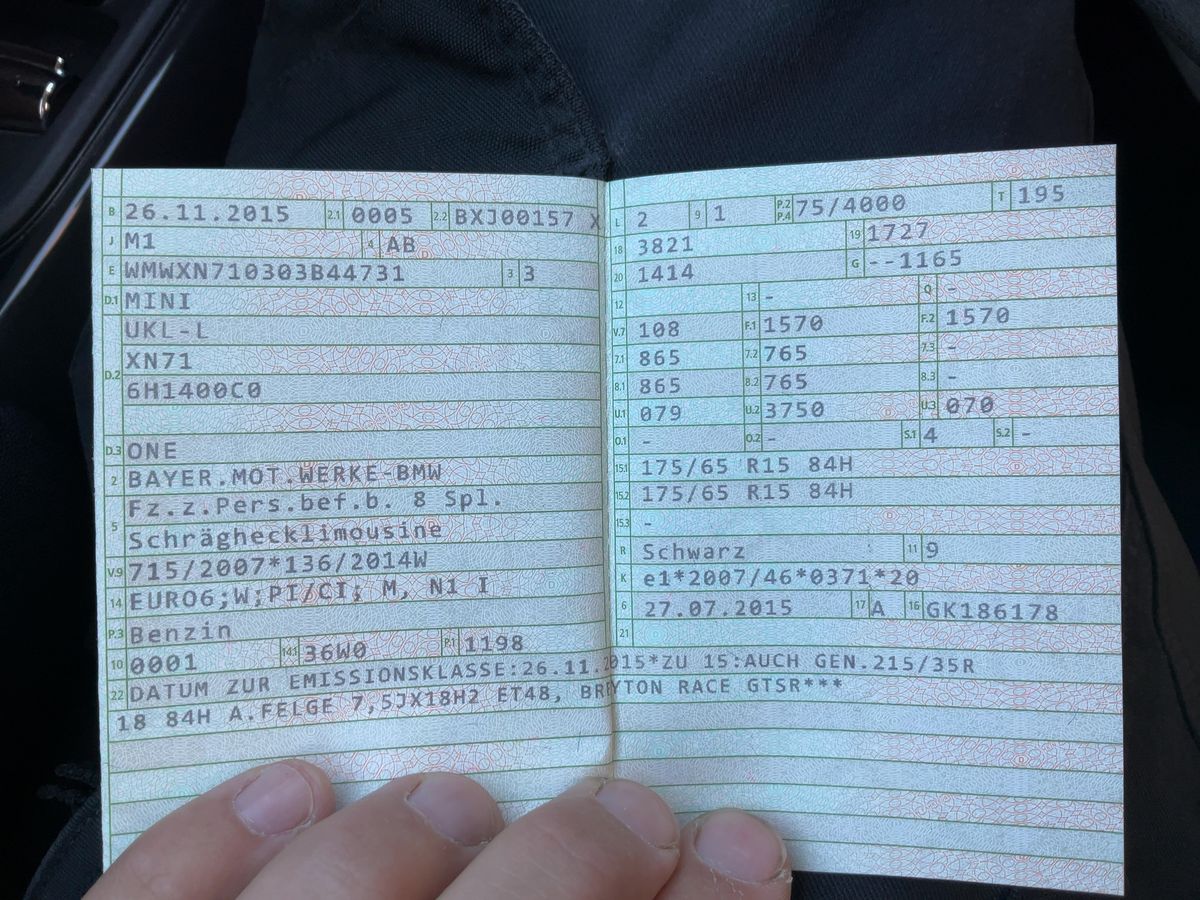 B 26.11.2015 2.1 0005 2.2 BXJ00157 X
J M1 4 AB
E WMWXN710303B44731 3 3
D.1 MINI
UKL-L
D.2 XN71
6H1400C0
D.3 ONE
2 BAYER.MOT.WERKE-BMW
5 Fz.z.Pers.bef.b. 8 Spl.
Schräghecklimousine
V.9 715/2007*136/2014W
14 EURO6;W;PI/CI; M, N1 I
P.3 Benzin
10 0001 14.1 36W0 P.1 1198
22 DATUM ZUR EMISSIONSKLASSE:26.11.2015*ZU 15:AUCH GEN.215/35R
18 84H A.FELGE 7,5JX18H2 ET48, BREYTON RACE GTSR***
L 2 9 1 P.2 P.4 75/4000 T 195
18 3821 19 1727
20 1414 G --1165
12 13 - Q -
V.7 108 F.1 1570 F.2 1570
7.1 865 7.2 765 7.3 -
8.1 865 8.2 765 8.3 -
U.1 079 U.2 3750 U.3 070
O.1 - O.2 - S.1 4 S.2 -
15.1 175/65 R15 84H
15.2 175/65 R15 84H
15.3 -
R Schwarz 11 9
K e1*2007/46*0371*20
6 27.07.2015 17 A 16 GK186178
21